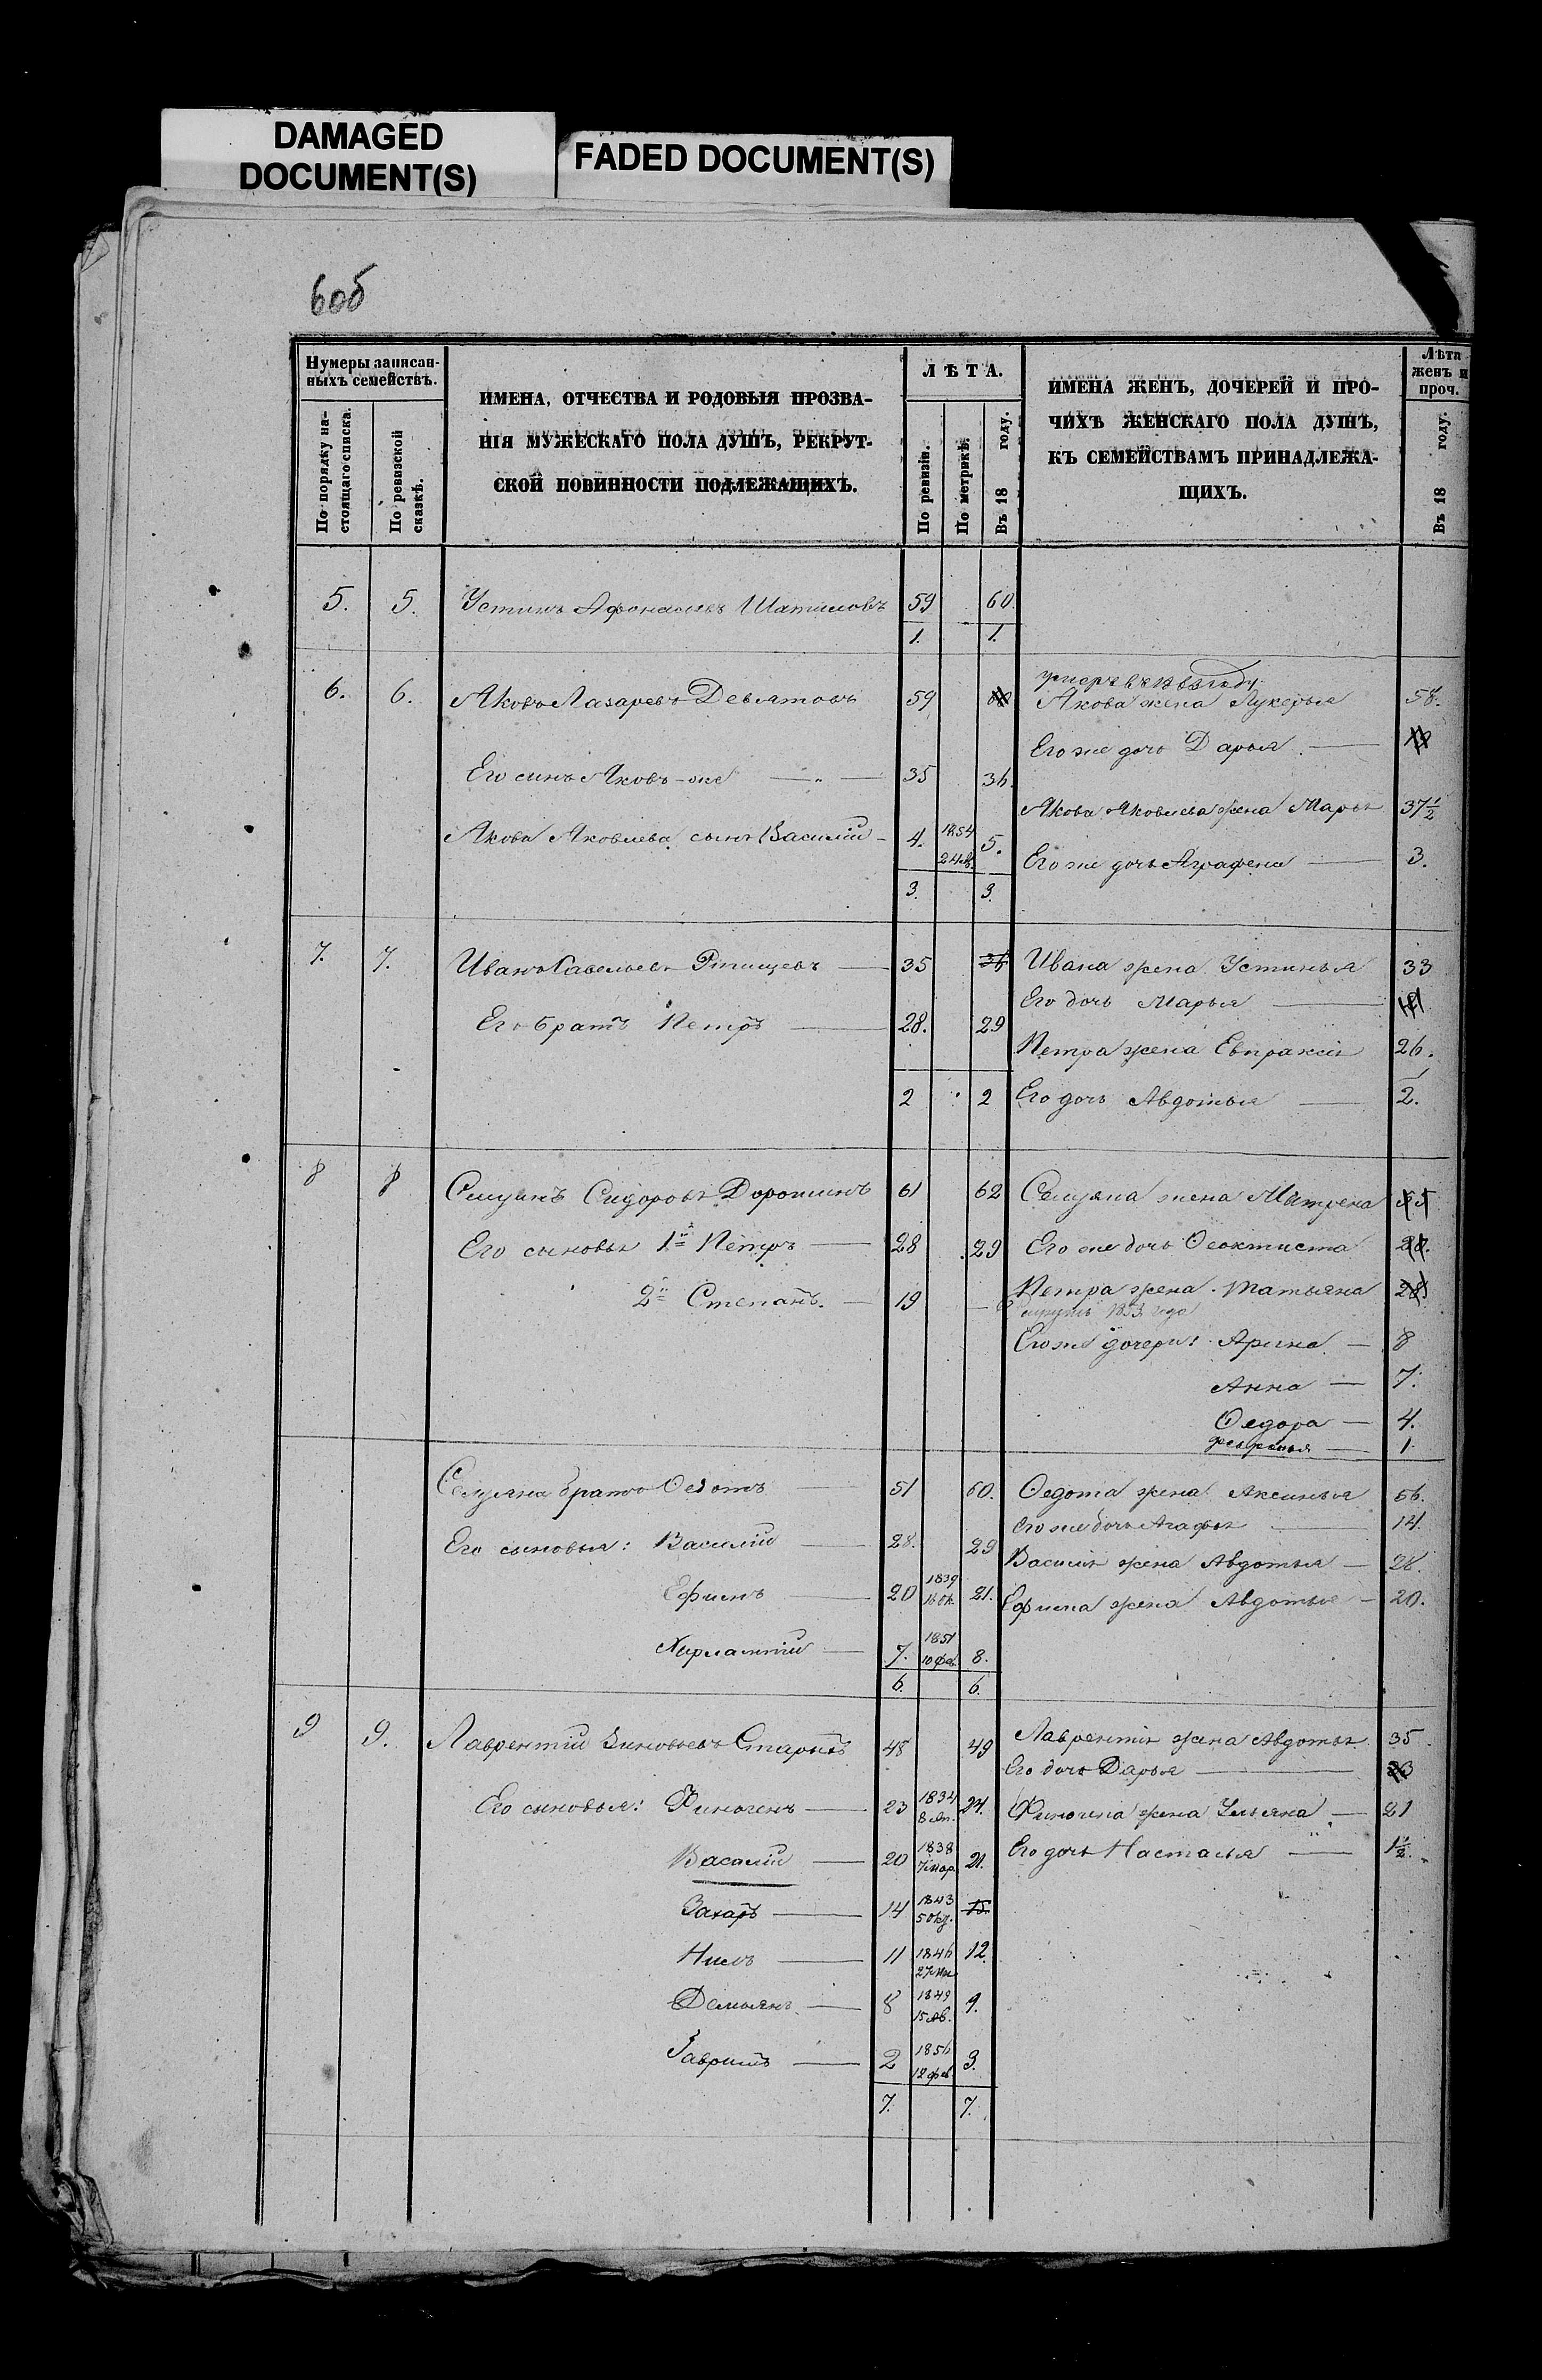 DAMAGED
DOCUMENT(S)
FADED DOCUMENT(S)
6об
Нумеры записан-
ныхъ семействъ.
По порядку на-
стоящаго списка.
По ревизской
сказкѣ.
ИМЕНА, ОТЧЕСТВА И РОДОВЫЯ ПРОЗВА-
НІЯ МУЖЕСКАГО ПОЛА ДУШЪ, РЕКРУТ-
СКОЙ ПОВИННОСТИ ПОДЛЕЖАЩИХЪ.
ЛѢТА.
По ревизіи.
По метрикѣ.
Въ 18 году.
ИМЕНА ЖЕНЪ, ДОЧЕРЕЙ И ПРО-
ЧИХЪ ЖЕНСКАГО ПОЛА ДУШЪ,
КЪ СЕМЕЙСТВАМЪ ПРИНАДЛЕЖА-
ЩИХЪ.
Лѣта
женъ и
проч.
Въ 18 году.
5. 5. Устинъ Афонасьевъ Шатиловъ 59 60.
1. 1.
6. 6. Яковъ Лазаревъ Девятовъ 59
Якова жена Лукерья 58.
Его же дочь Дарья
Его сынъ Яковъ-же 35 36.
Якова Яковлева жена Марья 37½
Якова Яковлева сынъ Василій 4. 1854 5.
Его же дочь Аграфена 3.
3. 3.
7. 7. Иванъ Савельевъ 35 36 Ивана жена Устинья 33
Его дочь Марья
Его братъ Петръ 28. 29
Петра жена Евпраксія 26.
2 2 Его дочь Авдотья 2.
8 8 Селуянъ Сидоровъ Дорошинъ 61 62 Селуяна жена Матрена 55
Его сыновья 1й Петръ 28 29 Его же дочь Ѳеоктиста
2й Степанъ. 19 Петра жена Татьяна
Его же дочери: Арина 8
Анна 7.
Ѳедора 4.
1
Селуяна братъ Ѳедотъ 51 60. Ѳедота жена Аксинья 56.
Его же дочь Агафья 14.
Его сыновья: Василій 28. 29
Василія жена Авдотья 28.
Ефимъ 20 1839 16 ок. 21. Ефима жена Авдотья 20.
Харлампій 7. 1851 10 фев. 8.
6. 6.
9 9. Лаврентій Зиновьевъ 48 49 Лаврентія жена Авдотья 35.
Его дочь Дарья
Его сыновья: Финогенъ 23 1834 24. Финогена жена Ульяна 21
Василій 20 1838 7 мар. 21. Его дочь Настасья 1½.
Захаръ 14 1843 15.
Нилъ 11 1846 12.
Демьянъ 8 1849 9.
Гаврилъ 2 1856 12 фев 3.
7. 7.